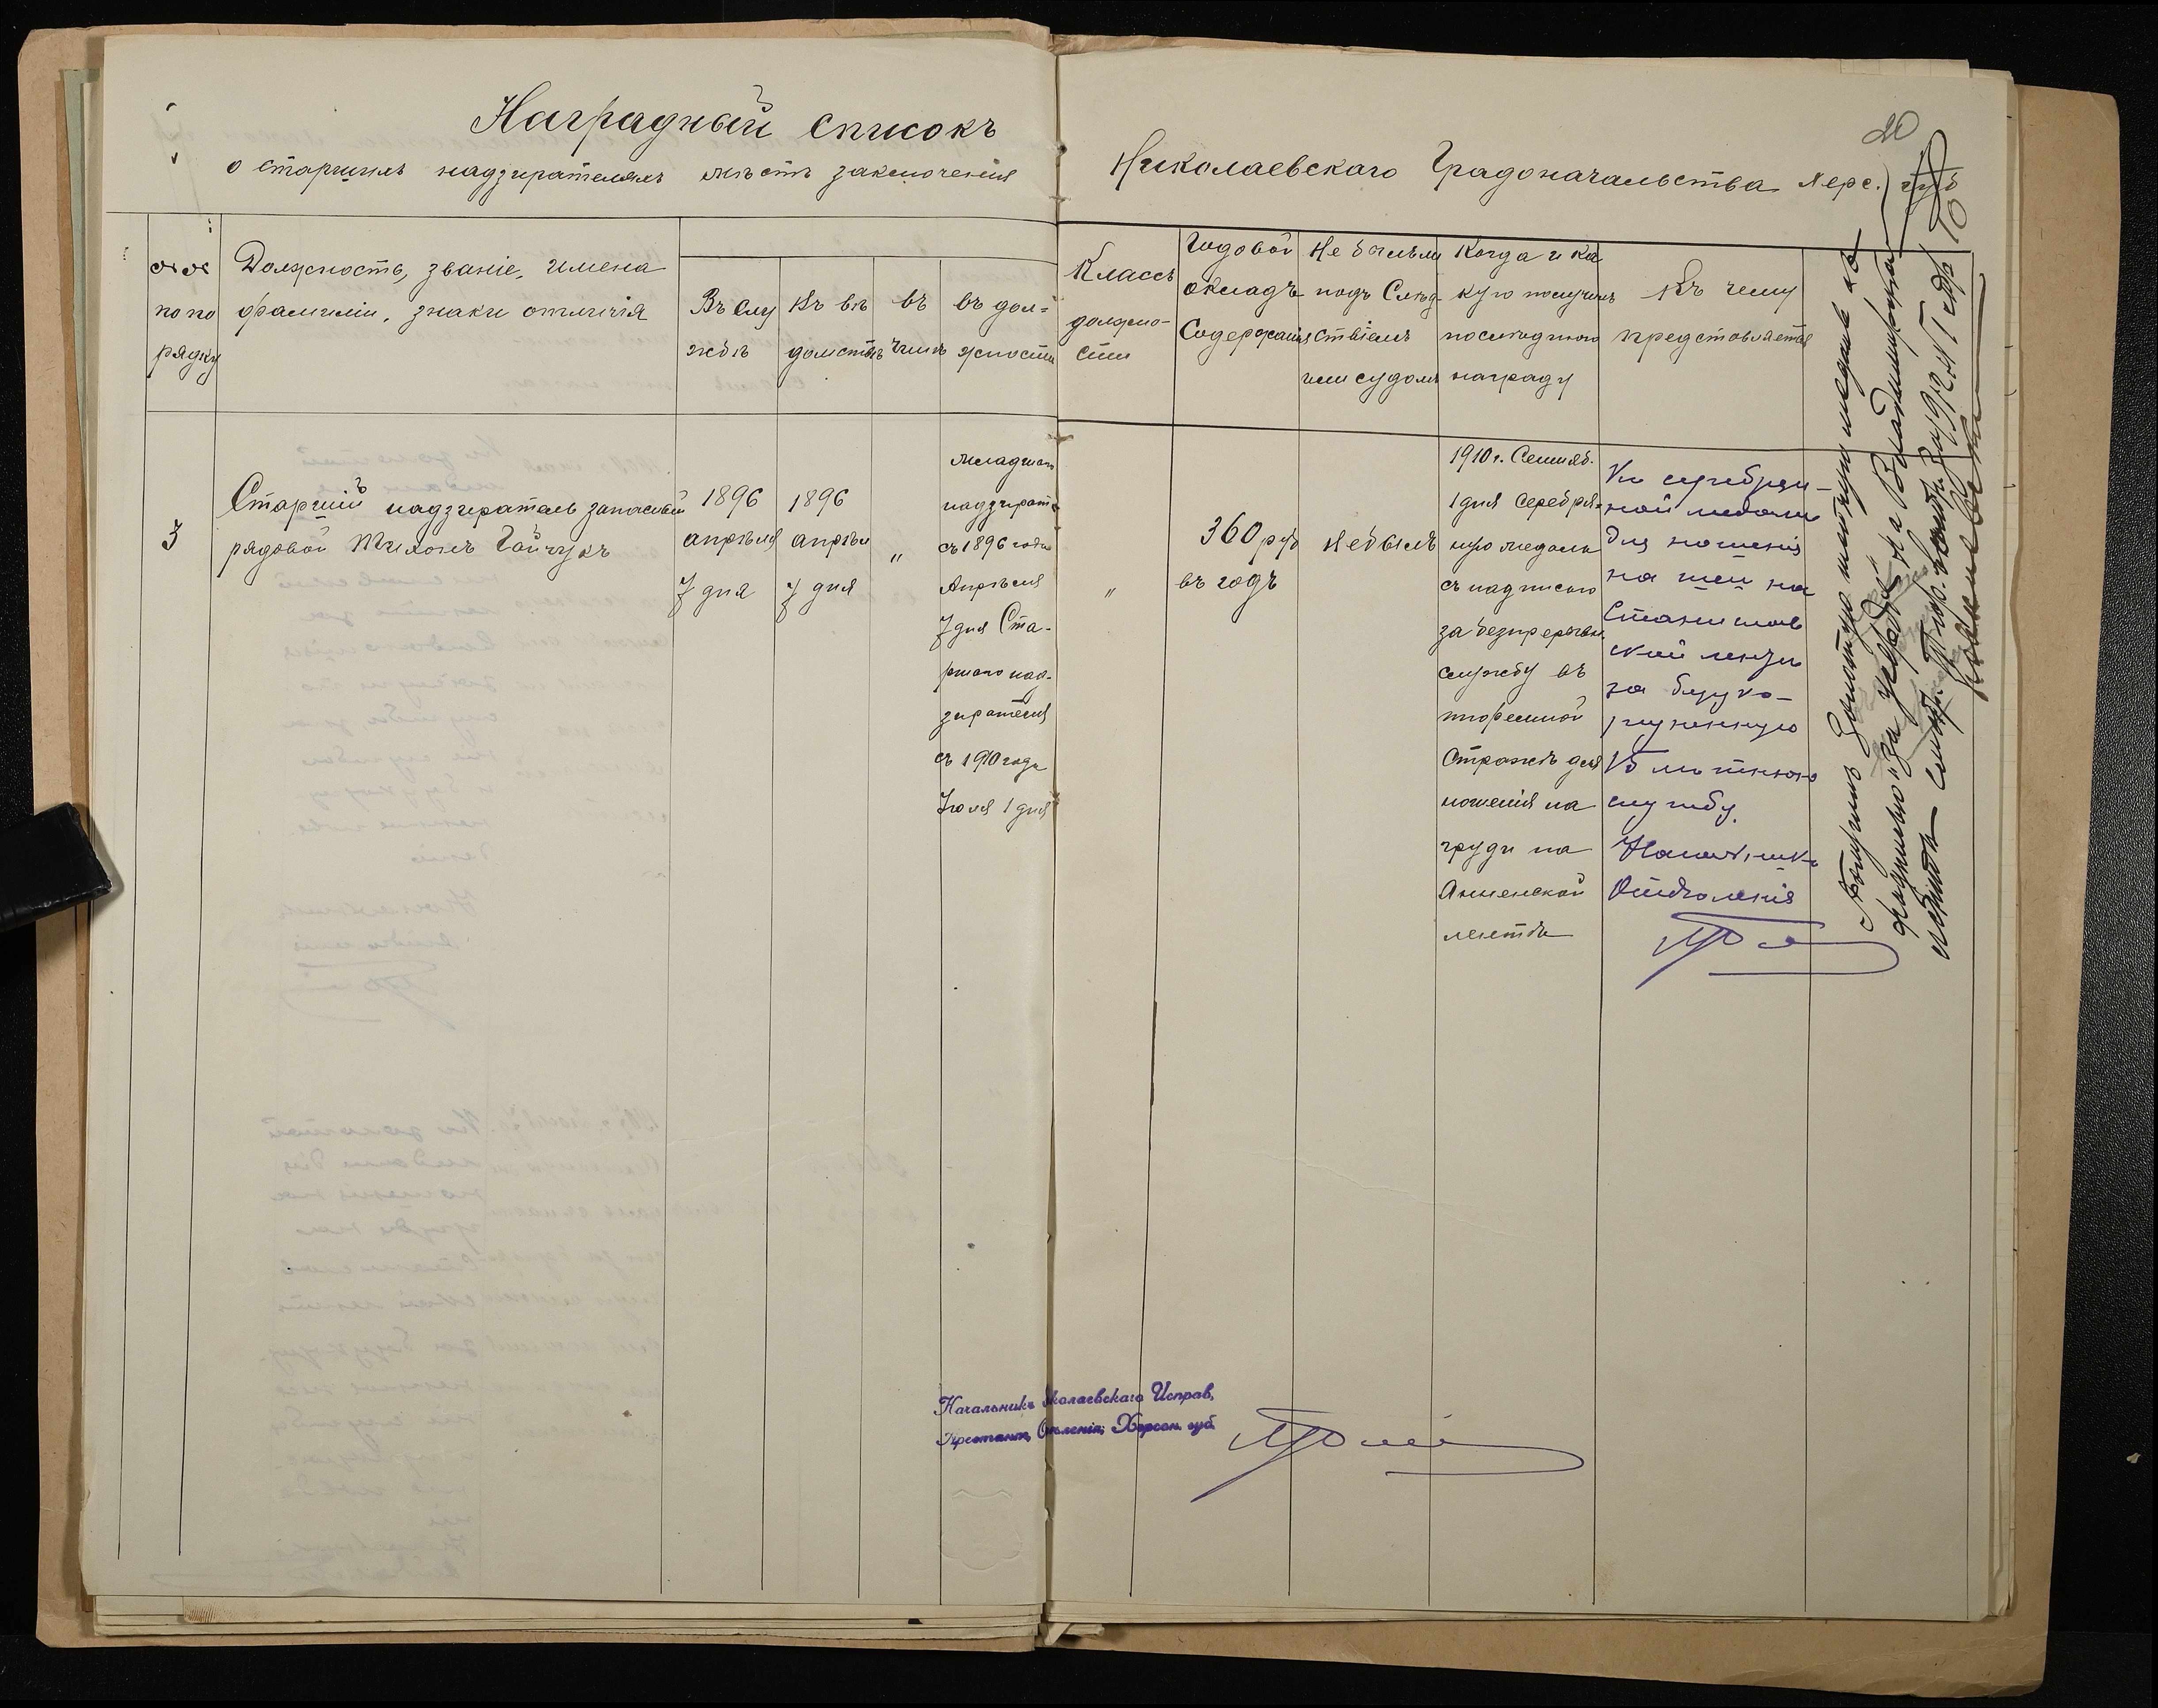 Наградный списокъ
о старшихъ надзирателяхъ мѣстъ заключенія Николаевскаго Градоначальства Херс. губ
20
№№
по по
рядку
Должность, званіе, имена
фамиліи, знаки отличія
Въ слу
жбѣ
Въ вѣ
домствѣ
въ
чинѣ
въ дол=
жности
Классъ
должно-
сти
Годовой
окладъ
Содержанія
Не былъ ли
подъ Слѣд-
ствіемъ
или судомъ
Когда и ка
кую получилъ
послѣднюю
награду
Къ чему
представляется
3
Старшій надзиратель запасный
рядовой Тихонъ Гайчукъ
1896
апрѣля
7 дня
1896
апрѣля
7 дня
"
младшаго
надзирате
съ 1896 года
Апрѣля
7 дня Ста-
ршаго над-
зирателя
съ 1910 года
Іюля 1 дня
"
360 руб
въ годъ
не былъ
1910 г. Сентяб.
1 дня серебрян
ную медаль
съ надписью
за безпрерывн.
службу въ
тюремной
Стражѣ для
ношенія на
груди на
Анненской
лентѣ
Къ серебрян-
ной медали
для ношенія
на шеи на
Станислав
ской ленты
за безуко-
ризненную
15 лѣтнюю
службу.
Начальникъ
Отдѣленія
Получилъ золотую шейную медаль съ
надписью "за усердіе" на Владимирской
лентѣ
Начальникъ Николаевскаго Исправ.
Арестант. Отдѣленія, Херсон. губ.